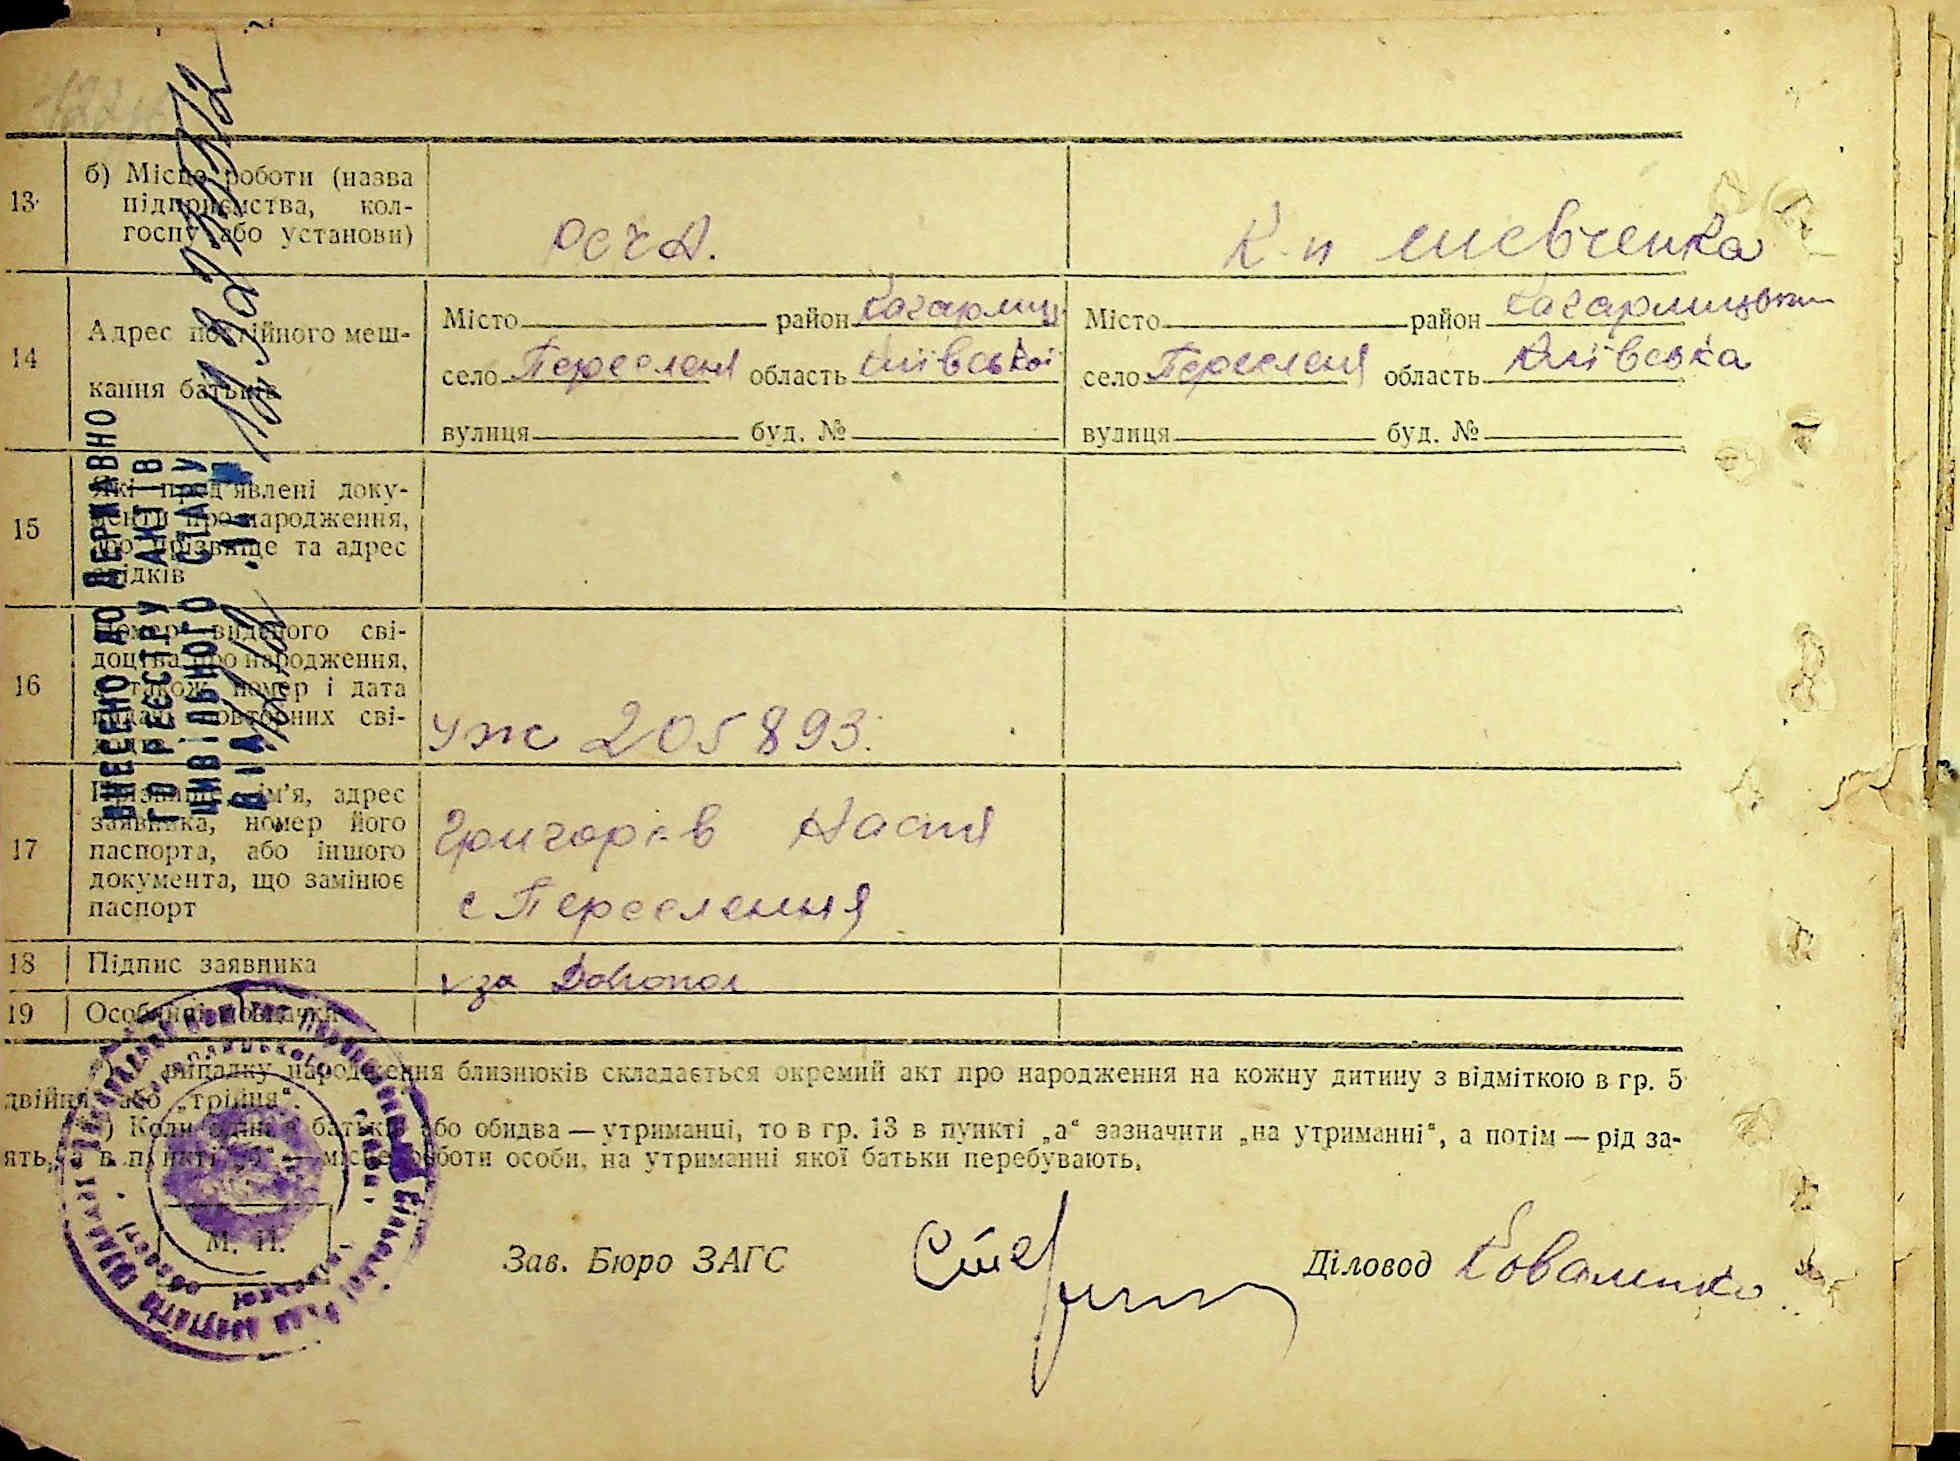 13
б) Місце роботи (назва
підприємства, кол-
госпу або установи)
РСЧА.
К-п шевченка
14
Адрес постійного меш-
кання батьків
Місто район Кагарлиц
село Переселеня область Київської
вулиця буд. №
Місто район Кагарлицький
село Переселеня область Київська
вулиця буд. №
15
Які пред'явлені доку-
менти про народження,
або прізвище та адрес
свідків
16
Номер виданого сві-
доцтва про народження,
а також номер і дата
видачі повторних сві-
УЖ 205893.
17
Прізвище, ім'я, адрес
заявника, номер його
паспорта, або іншого
документа, що замінює
паспорт
Григорів Настя
с Переселення
18
Підпис заявника
за
19
Особливі позначки
випадку народження близнюків складається окремий акт про народження на кожну дитину з відміткою в гр. 5
двійня або „трійня".
) Коли один з батьків або обидва — утриманці, то в гр. 13 в пункті „а" зазначити „на утриманні", а потім — рід за-
ять, а в пункті „б" — місце роботи особи, на утриманні якої батьки перебувають.
М. П.
Зав. Бюро ЗАГС
Діловод Коваленко
ВНЕСЕНО ДО ДЕРЖАВНО
ГО РЕЄСТРУ АКТІВ
ЦИВІЛЬНОГО СТАНУ
ВІД